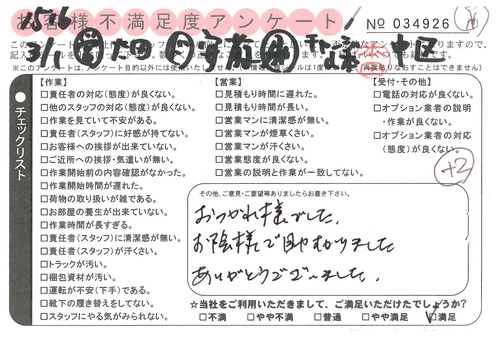 お客様不満足度アンケート
No 034926
チェックリスト
【作業】
□責任者の対応(態度)が良くない。
□他のスタッフの対応(態度)が良くない。
□作業を見ていて不安がある。
□責任者(スタッフ)に好感が持てない。
□お客様への挨拶が出来ていない。
□ご近所への挨拶・気遣いが無い。
□作業開始前の内容確認がなかった。
□作業開始時間が遅れた。
□荷物の取り扱いが雑である。
□お部屋の養生が出来ていない。
□作業時間が長すぎる。
□責任者(スタッフ)に清潔感が無い。
□責任者(スタッフ)が汗くさい。
□トラックが汚い。
□梱包資材が汚い。
□運転が不安(下手)である。
□靴下の履き替えをしてない。
□スタッフにやる気がみられない。
【営業】
□見積もり時間に遅れた。
□見積もり時間が長い。
□営業マンに清潔感が無い。
□営業マンが煙草くさい。
□営業マンが汗くさい。
□営業態度が良くない。
□営業の説明と作業が一致してない。
【受付・その他】
□電話の対応が良くない。
□オプション業者の説明
・作業が良くない。
□オプション業者の対応
(態度)が良くない。
+2
その他、ご意見・ご要望等ありましたらお書き下さい。
おつかれ様でした。
お陰様で助かりました
ありがとうございました。
☆当社をご利用いただきまして、ご満足いただけたでしょうか?
□不満 □やや不満 □普通 □やや満足 □満足